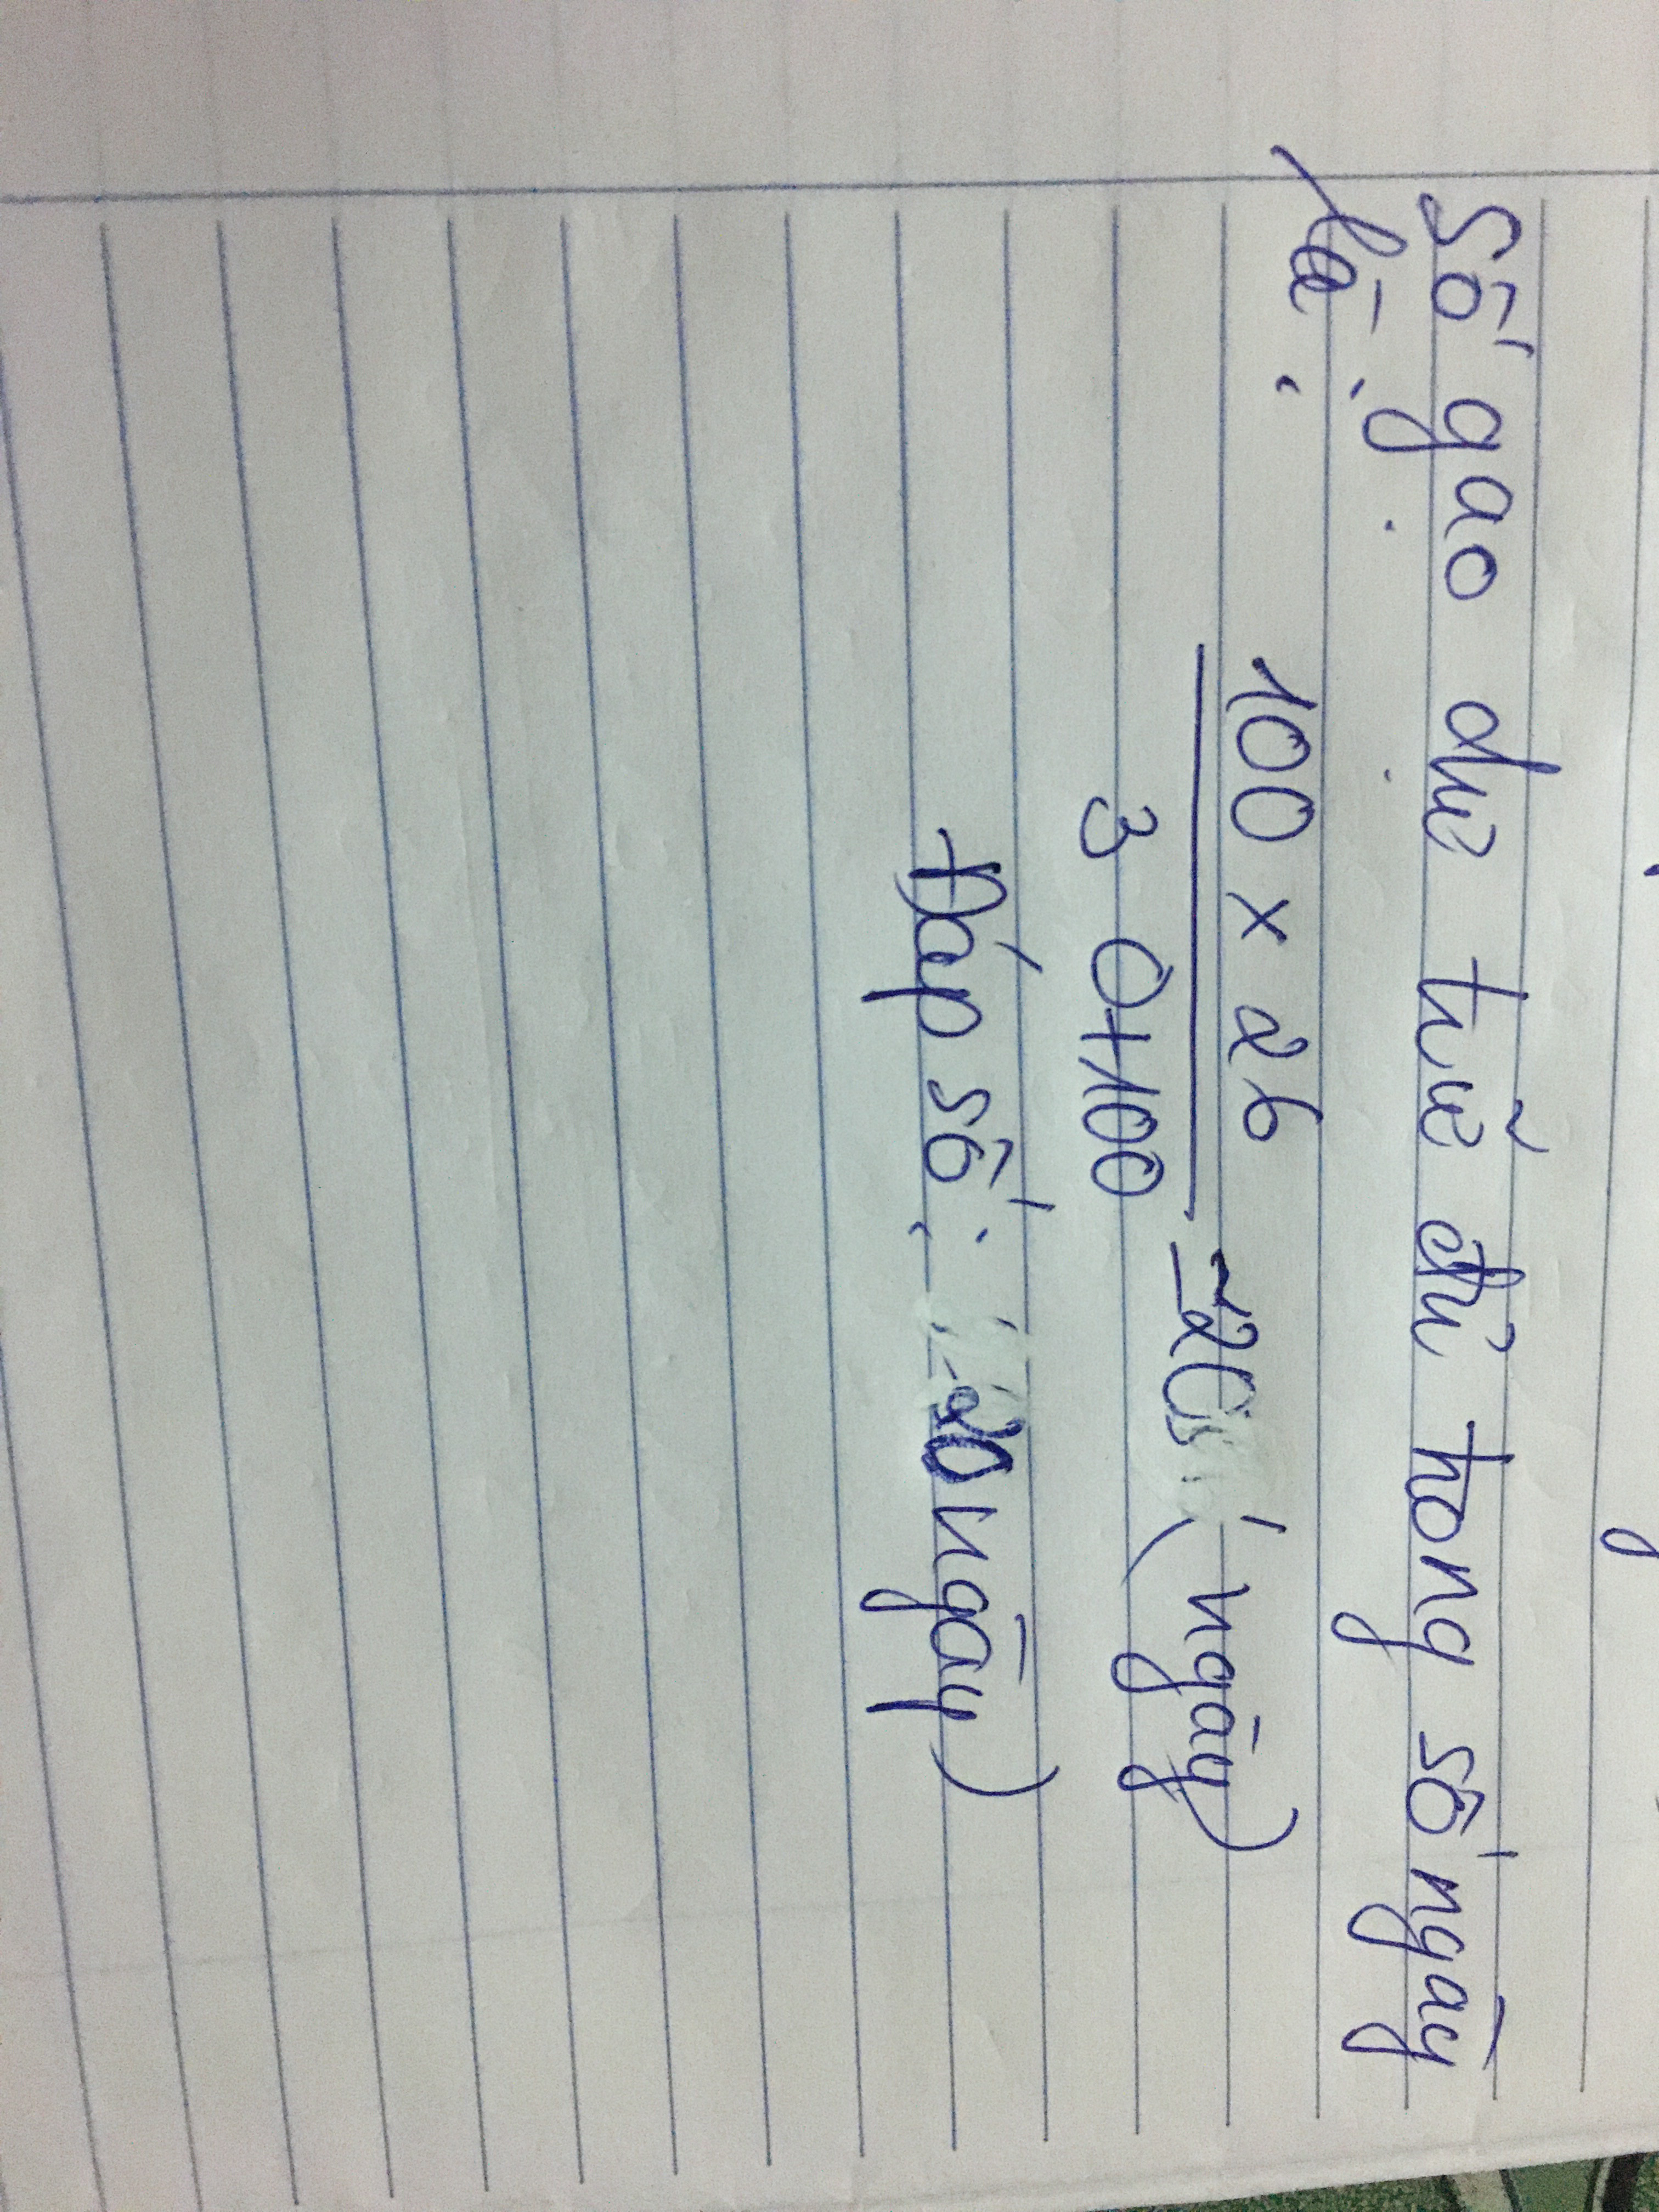 Số gạo dự trữ đủ trong số ngày
là:
100 x 26
3 0+100
= 20 (ngày)
Đáp số: 20 ngày)